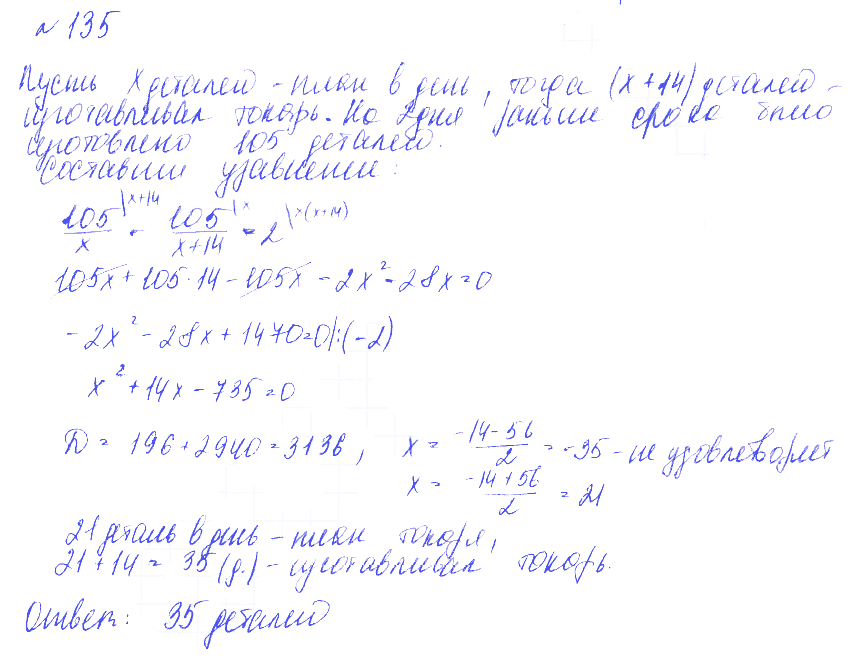 № 135
Пусть x деталей - план в день, тогда (x+14) деталей -
изготавливал токарь. На 2 дня раньше срока было
изготовлено 105 деталей.
Составим уравнение:
105/x \x+14 - 105/(x+14) \x = 2 \x(x+14)
105x + 105·14 - 105x - 2x² - 28x = 0
-2x² - 28x + 1470 = 0 |:(-2)
x² + 14x - 735 = 0
D = 196 + 2940 = 3136, x = (-14-56)/2 = -35 - не удовлетворяет
x = (-14+56)/2 = 21
21 деталь в день - план токаря,
21 + 14 = 35 (д.) - изготавливал токарь.
Ответ: 35 деталей